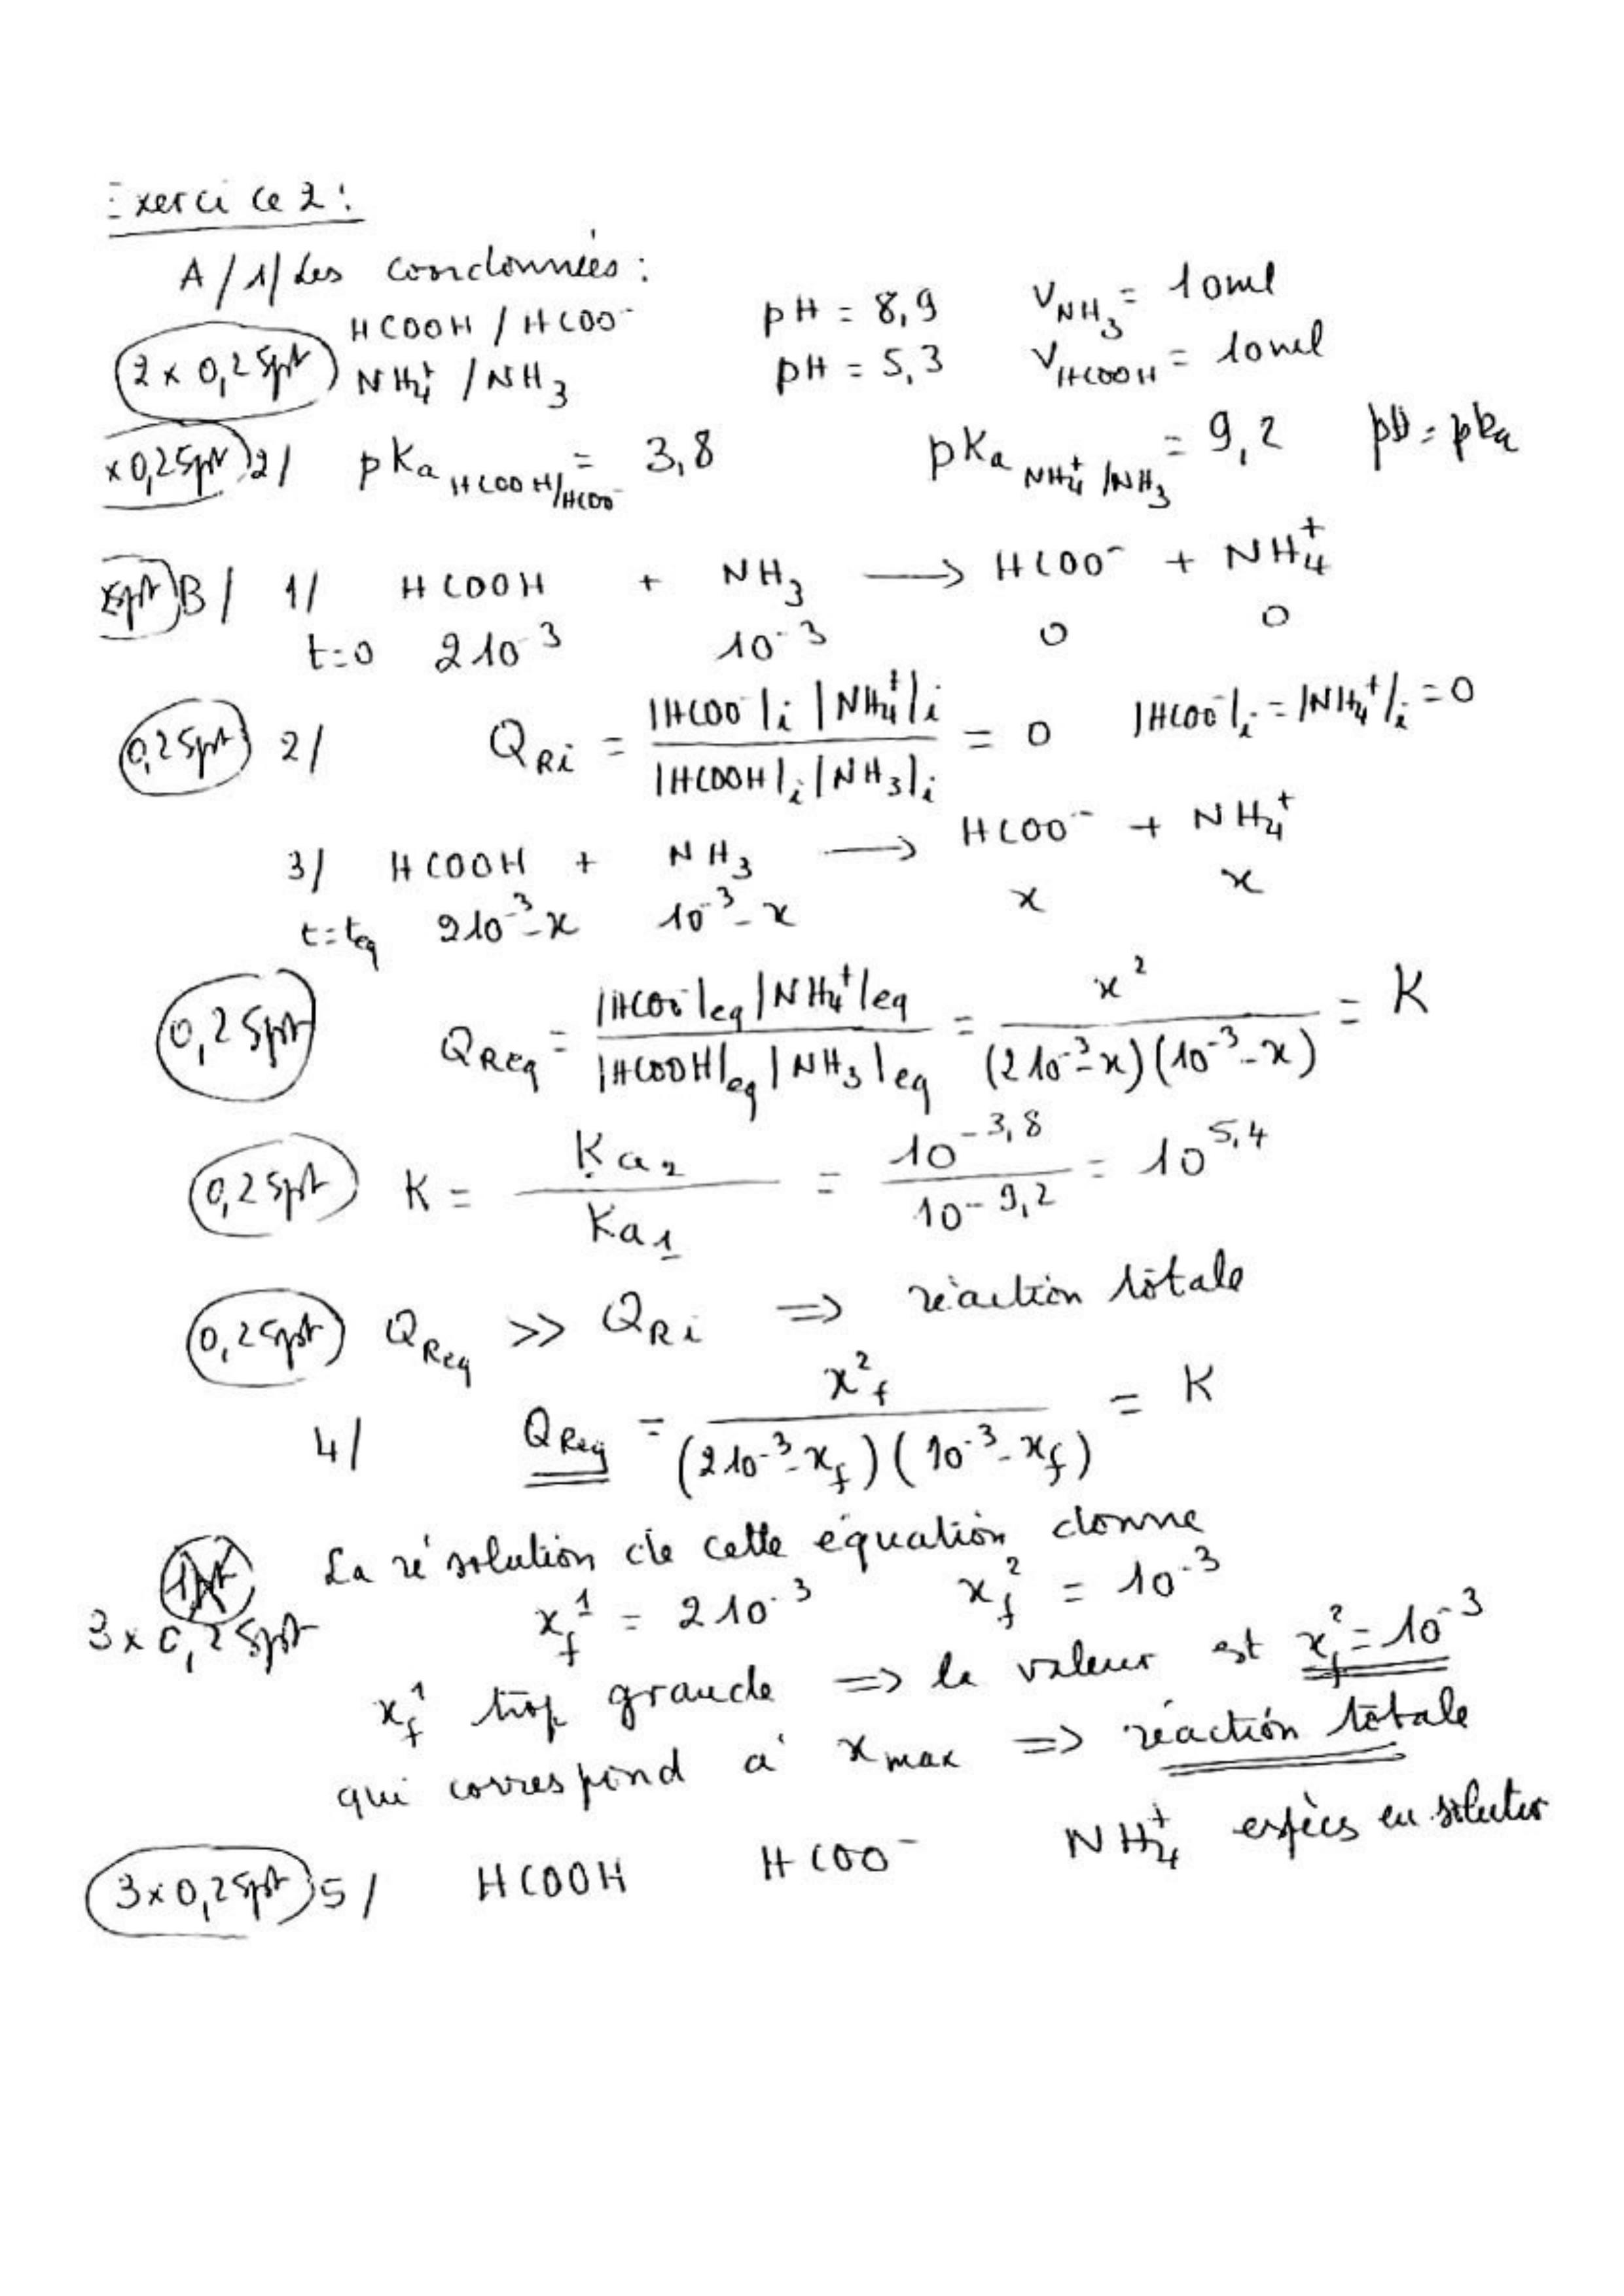 Exercice 2 :
A / 1/ Les coordonnées :
HCOOH / HCOO⁻ pH = 8,9 V_NH₃ = 10ml
2 x 0,25pt NH₄⁺ / NH₃ pH = 5,3 V_HCOOH = 10ml
x 0,25pt 2/ pKa HCOOH/HCOO⁻ = 3,8 pKa NH₄⁺/NH₃ = 9,2 pH = pKa
B / 1/ HCOOH + NH₃ → HCOO⁻ + NH₄⁺
t=0 2 10⁻³ 10⁻³ 0 0
0,25pt 2/ Q_Ri = |HCOO⁻|i |NH₄⁺|i / |HCOOH|i |NH₃|i = 0 |HCOO⁻|i = |NH₄⁺|i = 0
3/ HCOOH + NH₃ → HCOO⁻ + NH₄⁺
t=teq 2 10⁻³-x 10⁻³-x x x
0,25pt Q_Req = |HCOO⁻|eq |NH₄⁺|eq / |HCOOH|eq |NH₃|eq = x² / (2 10⁻³-x)(10⁻³-x) = K
0,25pt K = Ka₂ / Ka₁ = 10⁻³,⁸ / 10⁻⁹,² = 10⁵,⁴
0,25pt Q_Req >> Q_Ri ⇒ réaction totale
4/ Q_Req = x²f / (2 10⁻³-xf)(10⁻³-xf) = K
1pt La résolution de cette équation donne
3 x 0,25pt xf¹ = 2 10⁻³ xf² = 10⁻³
xf¹ trop grande ⇒ la valeur est xf² = 10⁻³
qui correspond à xmax ⇒ réaction totale
3 x 0,25pt 5/ HCOOH HCOO⁻ NH₄⁺ espèces en solution